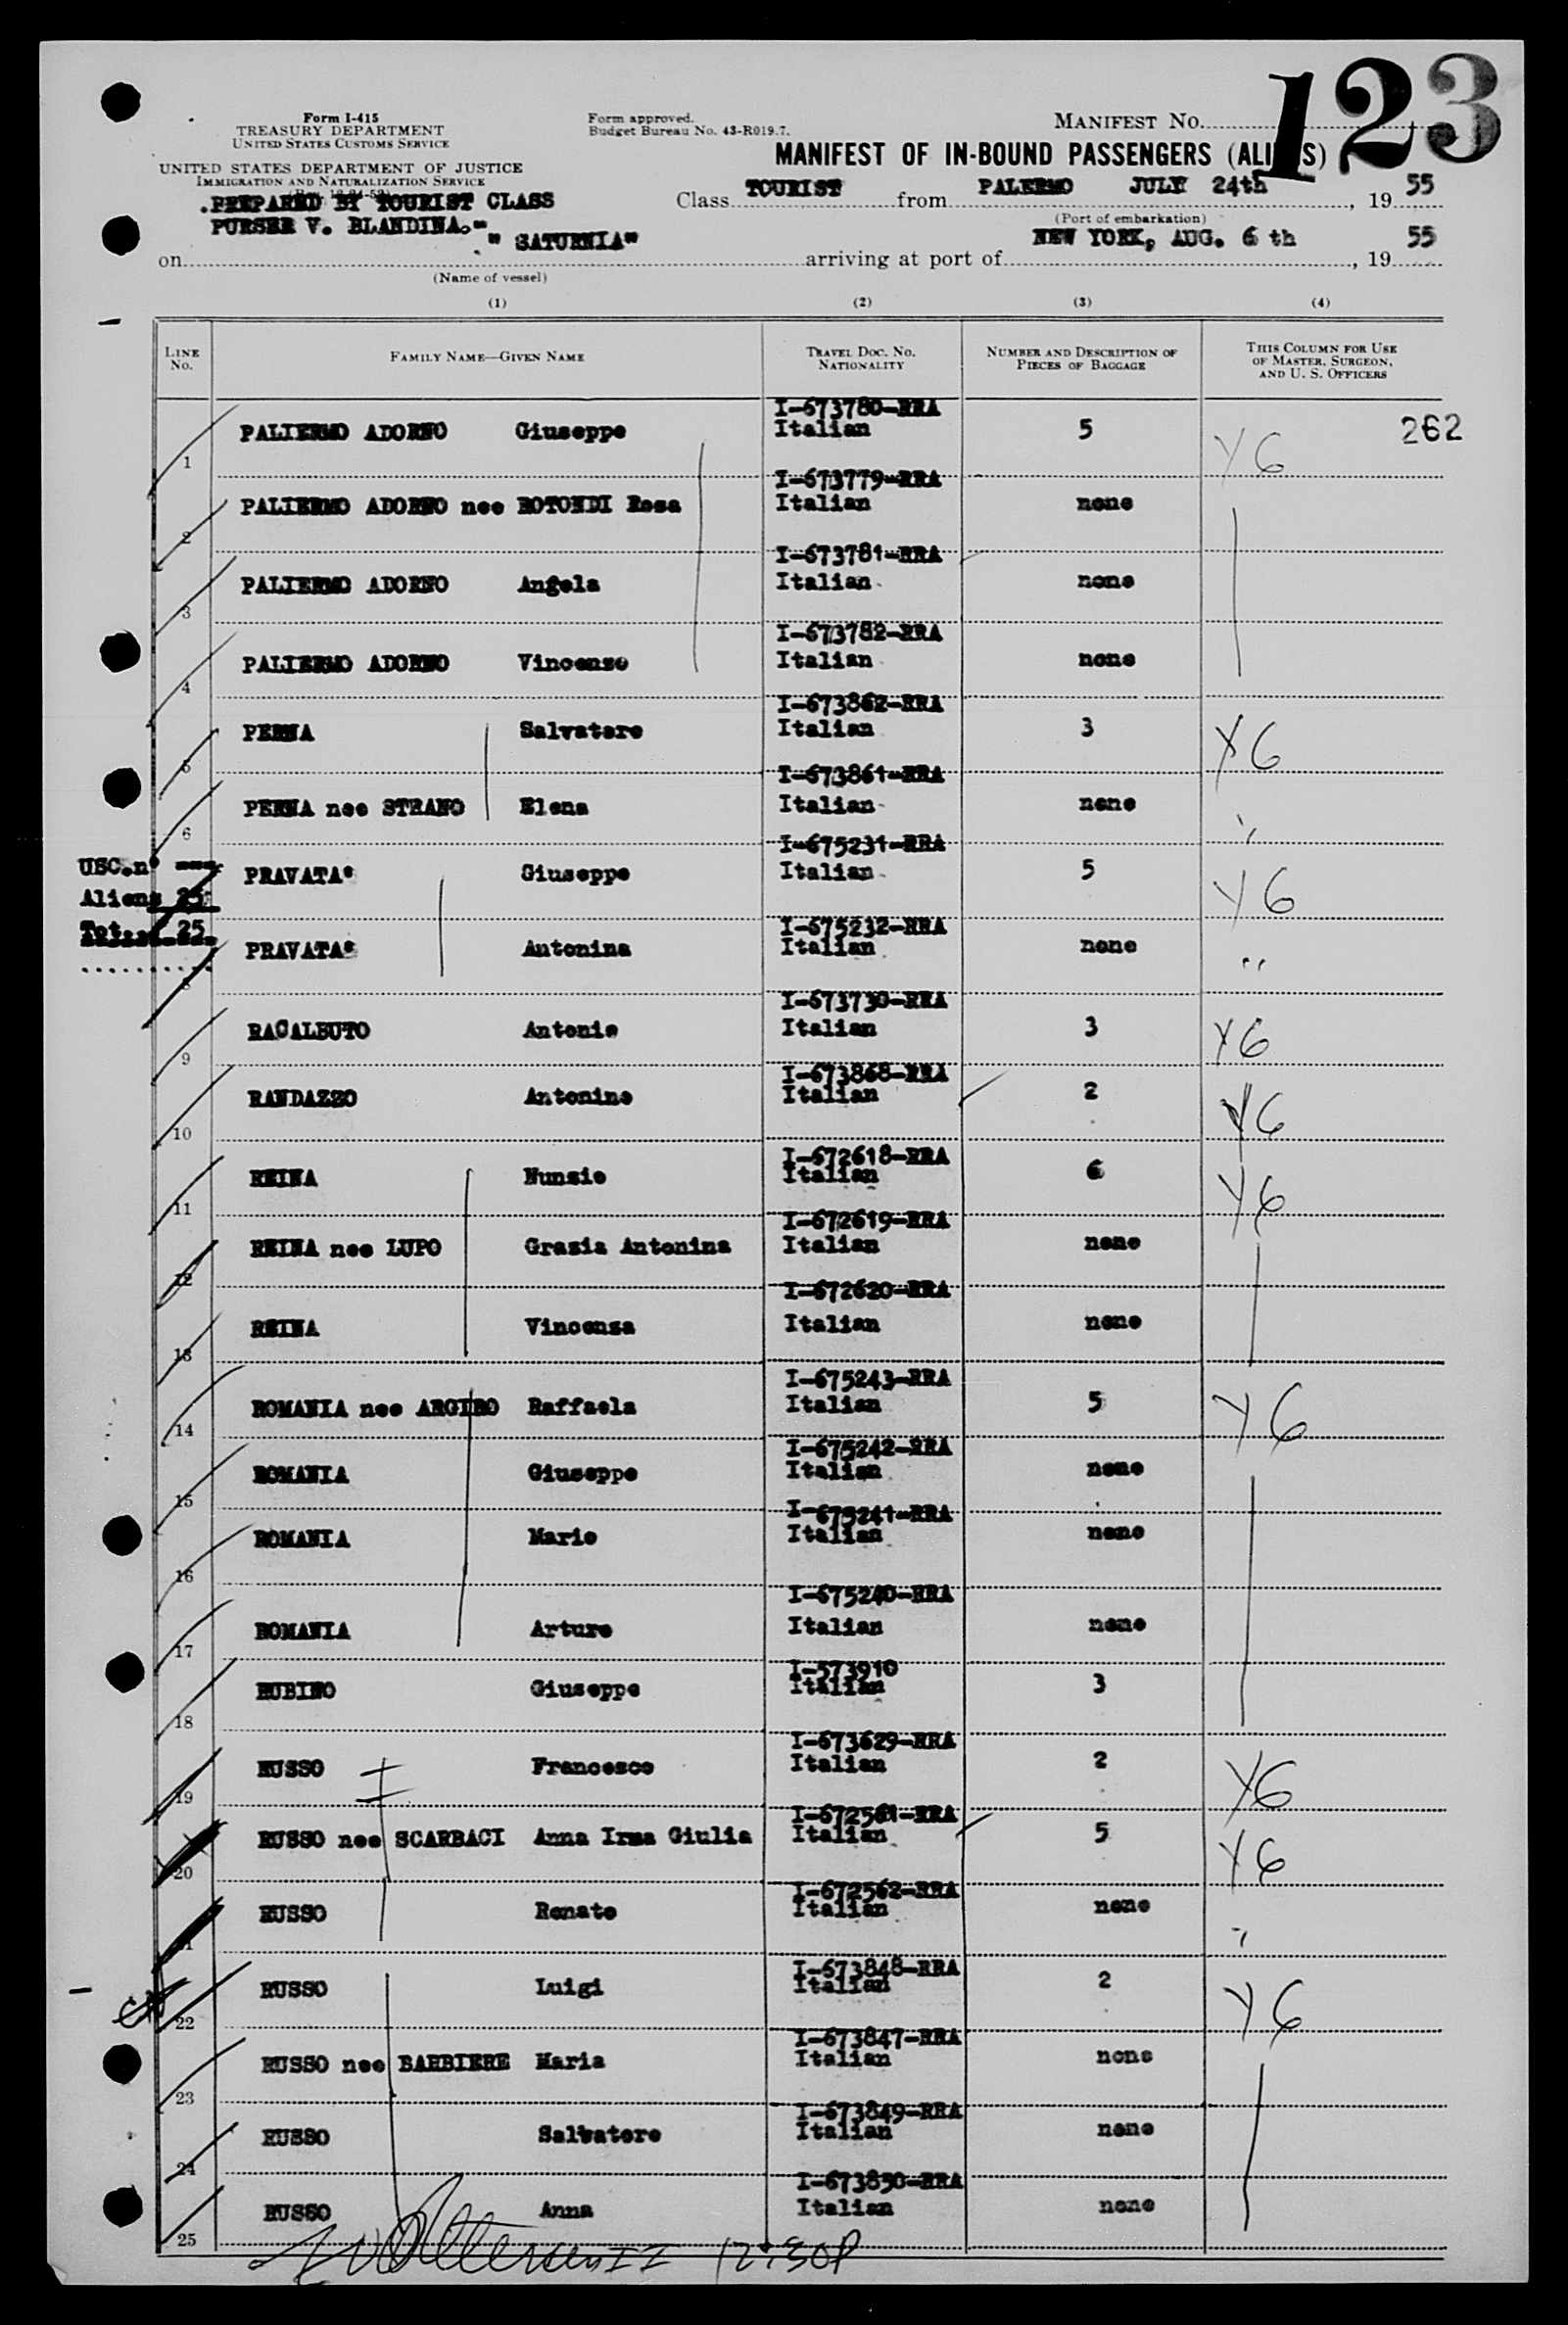 123
Form I-415
TREASURY DEPARTMENT
UNITED STATES CUSTOMS SERVICE
Form approved.
Budget Bureau No. 43-R019.7.
MANIFEST No.
UNITED STATES DEPARTMENT OF JUSTICE
IMMIGRATION AND NATURALIZATION SERVICE
MANIFEST OF IN-BOUND PASSENGERS (ALIENS)
PREPARED BY TOURIST CLASS
PURSER V. BLANDINA.-
Class TOURIST from PALERMO JULY 24th, 19 55
(Port of embarkation)
on " SATURNIA" arriving at port of NEW YORK, AUG. 6 th, 19 55
(Name of vessel)
(1) (2) (3) (4)
LINE No. FAMILY NAME—GIVEN NAME TRAVEL DOC. No. NATIONALITY NUMBER AND DESCRIPTION OF PIECES OF BAGGAGE THIS COLUMN FOR USE OF MASTER, SURGEON, AND U. S. OFFICERS
I-673780-RRA
1 PALIERMO ADORNO Giuseppe Italian 5 Y6 262
I-673779-RRA
2 PALIERMO ADORNO nee ROTONDI Rosa Italian none
I-673781-RRA
3 PALIERMO ADORNO Angela Italian none
I-673782-RRA
4 PALIERMO ADORNO Vincenzo Italian none
I-673862-RRA
5 PERNA Salvatore Italian 3 Y6
I-673861-RRA
6 PERNA nee STRANO Elena Italian none "
I-675231-RRA
PRAVATA' Giuseppe Italian 5 Y6
USC.n' ---
Aliens 25
Tot. 25
I-675232-RRA
8 PRAVATA' Antonina Italian none "
I-673730-RRA
9 RACALBUTO Antonio Italian 3 Y6
I-673868-RRA
10 RANDAZZO Antonino Italian 2 Y6
I-672618-RRA
11 REINA Nunzio Italian 6 Y6
I-672619-RRA
12 REINA nee LUPO Grazia Antonina Italian none
I-672620-RRA
13 REINA Vincenza Italian none
I-675243-RRA
14 ROMANIA nee ARGIRO Raffaela Italian 5 Y6
I-675242-RRA
15 ROMANIA Giuseppe Italian none
I-675241-RRA
16 ROMANIA Mario Italian none
I-675240-RRA
17 ROMANIA Arturo Italian none
I-573910
18 RUBINO Giuseppe Italian 3
I-673629-RRA
19 RUSSO Francesco Italian 2 Y6
I-672561-RRA
20 RUSSO nee SCARBACI Anna Irma Giulia Italian 5 Y6
I-672562-RRA
21 RUSSO Renato Italian none "
I-673848-RRA
22 RUSSO Luigi Italian 2 Y6
I-673847-RRA
23 RUSSO nee BARBIERE Maria Italian none
I-673849-RRA
24 RUSSO Salvatore Italian none
I-673850-RRA
25 RUSSO Anna Italian none
12:30P